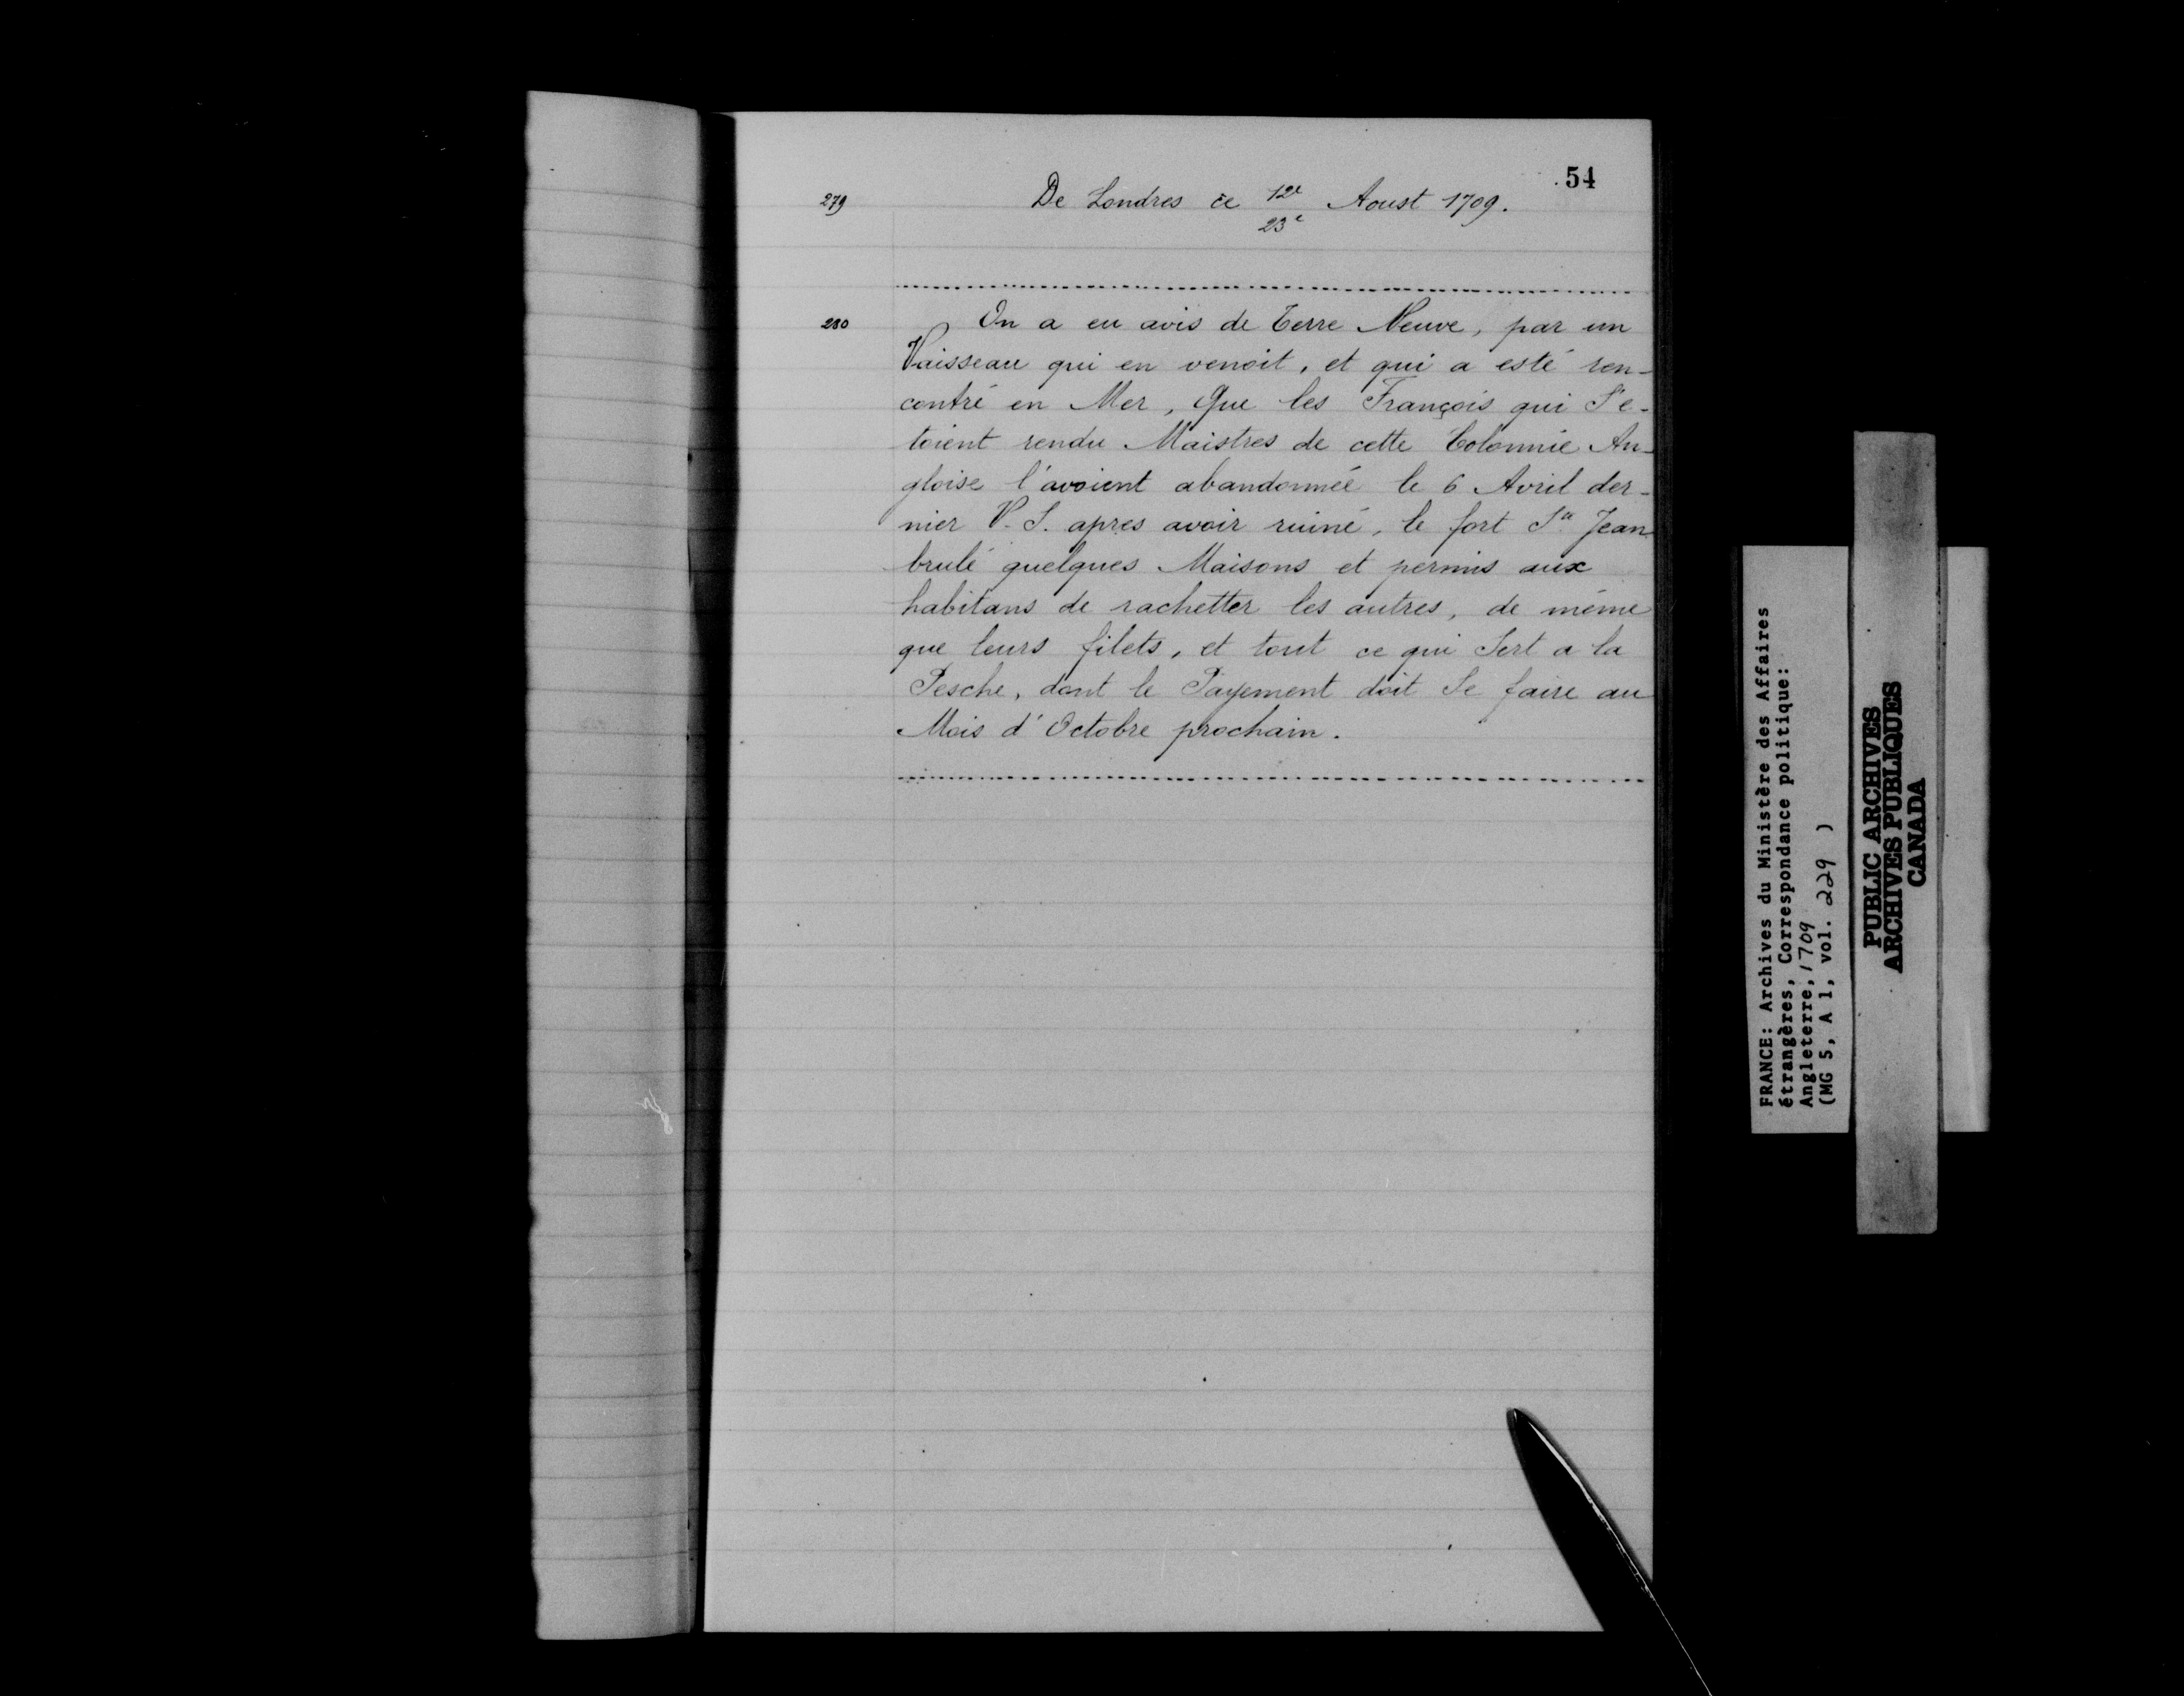 54
279 De Londres ce 12e/23e Aoust 1709.
280 On a eu avis de Terre Neuve, par un
Vaisseau qui en venoit, et qui a esté ren-
contré en Mer, Que les François qui S'e-
toient rendu Maistres de cette Colonnie An-
gloise l'avoient abandonnée le 6 Avril der-
nier V. S. apres avoir ruiné, le fort St. Jean
brulé quelques Maisons et permis aux
habitans de rachetter les autres, de même
que leurs filets, et tout ce qui Sert a la
Pesche, dont le Payement doit Se faire au
Mois d'Octobre prochain.
FRANCE: Archives du Ministère des Affaires
étrangères, Correspondance politique:
Angleterre, 1709
(MG 5, A 1, vol. 229 )
PUBLIC ARCHIVES
ARCHIVES PUBLIQUES
CANADA